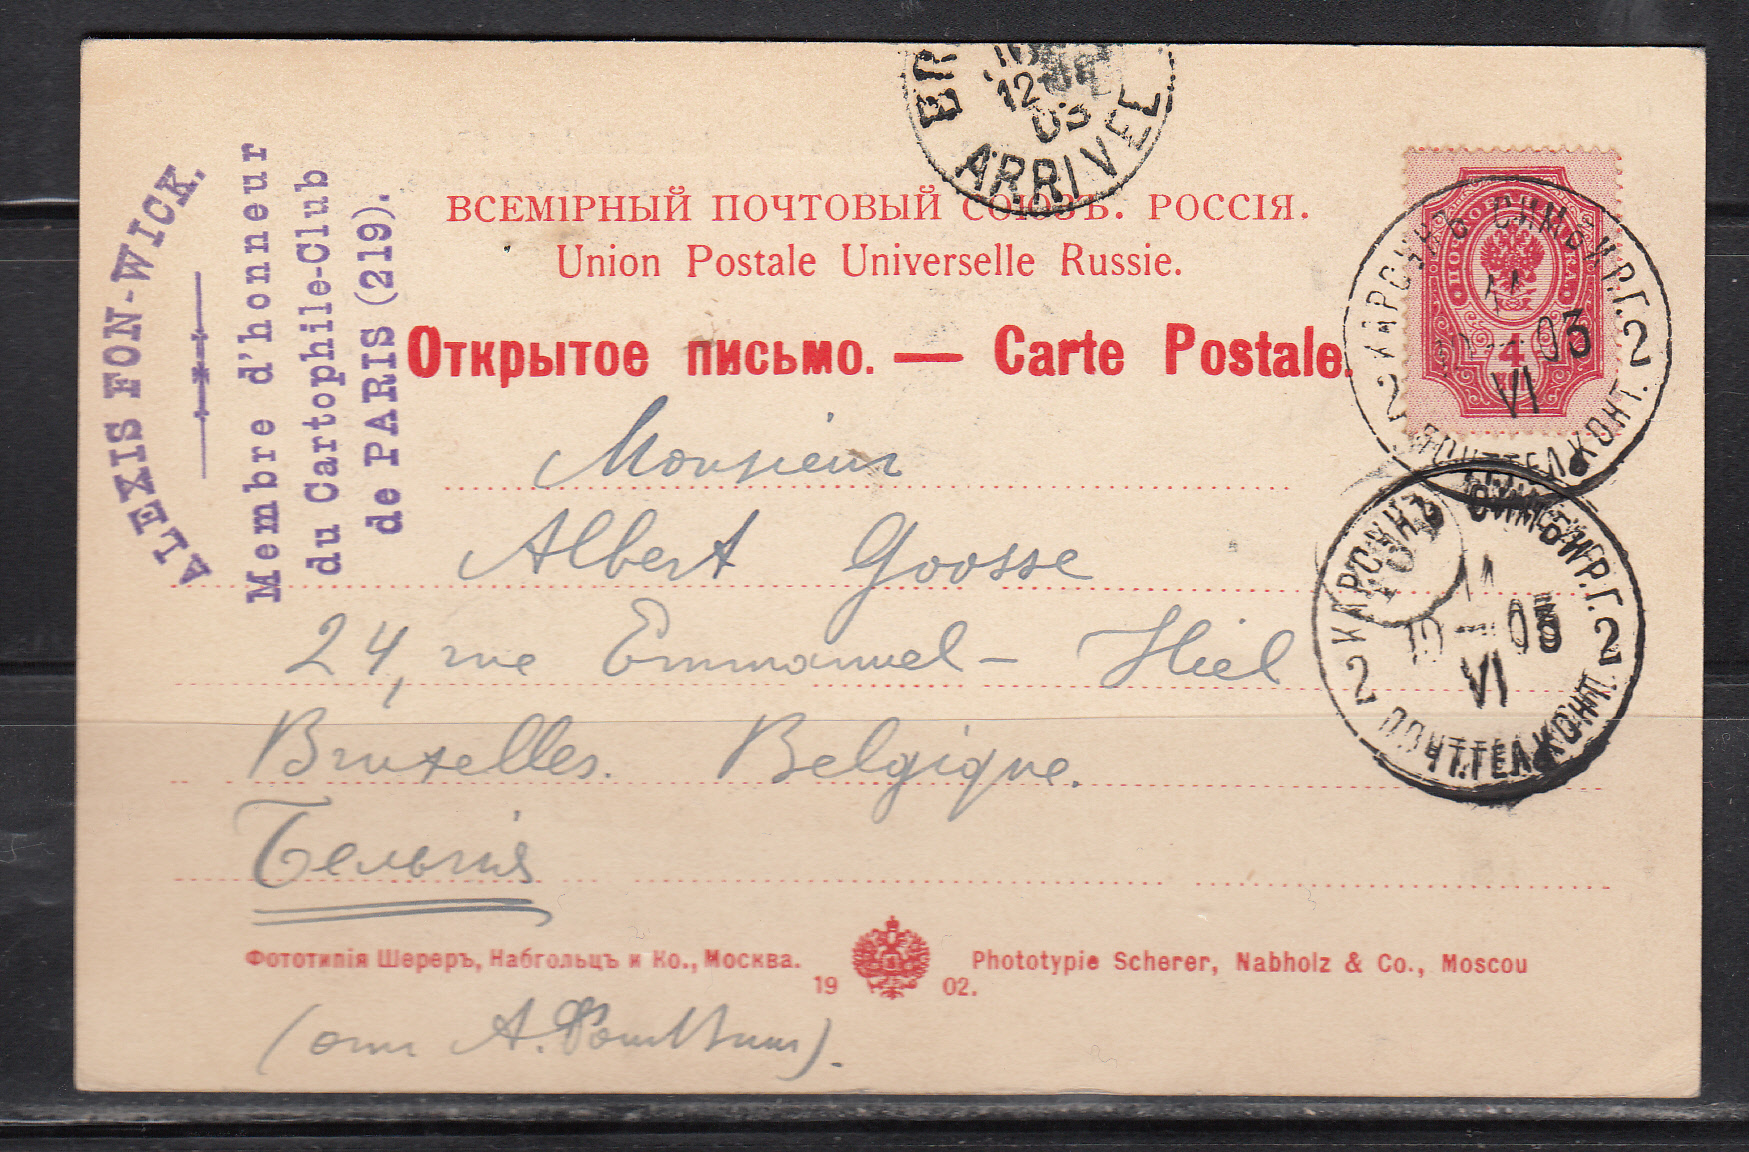 ALEXIS FON-WICK.
Membre d'honneur
du Cartophile-Club
de PARIS (219).
12
03
ARRIVEE
ВСЕМІРНЫЙ ПОЧТОВЫЙ СОЮЗЪ. РОССІЯ.
Union Postale Universelle Russie.
Открытое письмо. — Carte Postale.
КАРСУНЪ СИМБИР.Г.
11
03
VI
2 2
ПОЧТ.ТЕЛ.КОНТ.
4
Monsieur
Albert Goosse
24, rue Emmanuel - Hiel
Bruxelles. Belgique.
Бельгія
КАРСУНЪ СИМБИР.Г.
11
10 - 03
VI
2 2
ПОЧТ.ТЕЛ.КОНТ.
Фототипія Шереръ, Набгольцъ и Ко., Москва. Phototypie Scherer, Nabholz & Co., Moscou
1902.
(отъ А. Фонъ-Викъ).